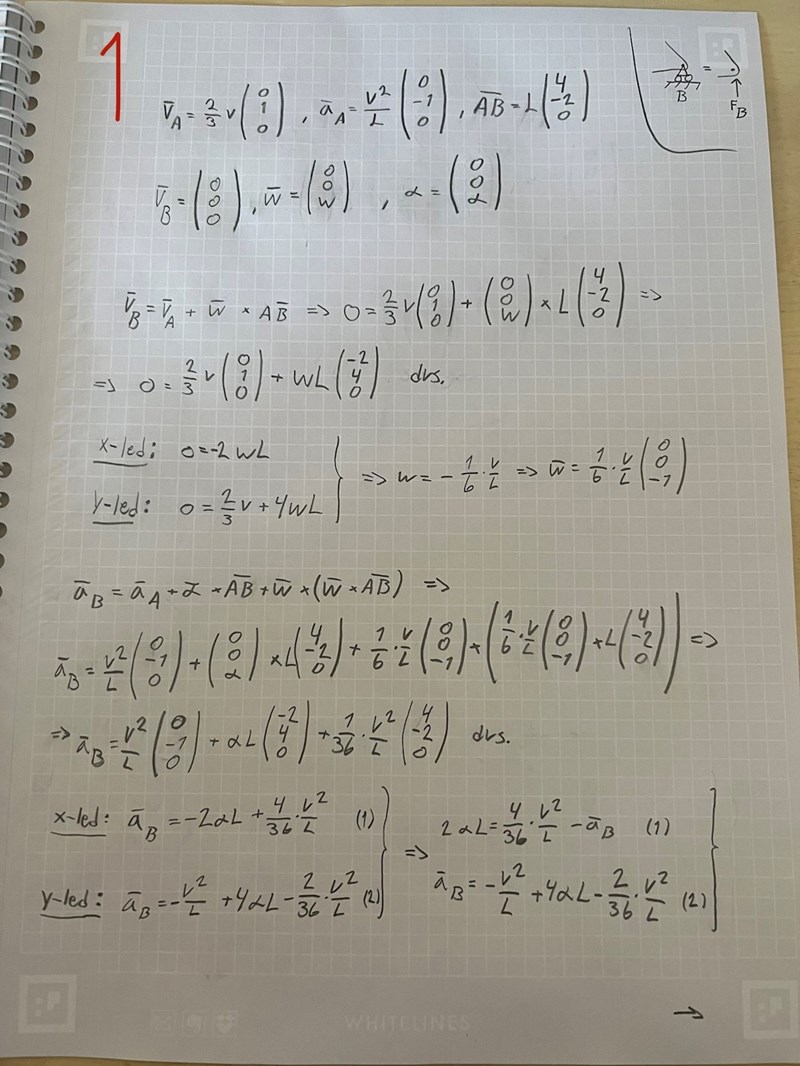 1
V̄_A = 2/3 v (0 1 0) , ā_A = v²/L (0 -1 0) , A̅B̅ = L (4 -2 0)
B = F_B
V̄_B = (0 0 0) , w̄ = (0 0 w) , α = (0 0 α)
V̄_B = V̄_A + w̄ × AB̅ => 0 = 2/3 v (0 1 0) + (0 0 w) × L (4 -2 0) =>
=> 0 = 2/3 v (0 1 0) + wL (-2 4 0) dvs.
x-led: 0 = -2wL
y-led: 0 = 2/3 v + 4wL
} => w = - 1/6 · v/L => w̄ = 1/6 · v/L (0 0 -1)
ā_B = ā_A + ᾱ × A̅B̅ + w̄ × (w̄ × A̅B̅) =>
ā_B = v²/L (0 -1 0) + (0 0 α) × L (4 -2 0) + 1/6 · v/L (0 0 -1) × (1/6 · v/L (0 0 -1) × L (4 -2 0)) =>
=> ā_B = v²/L (0 -1 0) + αL (-2 4 0) + 1/36 · v²/L (4 -2 0) dvs.
x-led: ā_B = -2αL + 4/36 · v²/L (1)
y-led: ā_B = - v²/L + 4αL - 2/36 · v²/L (2)
} => 2αL = 4/36 · v²/L - ā_B (1)
ā_B = - v²/L + 4αL - 2/36 · v²/L (2) }
→
WHITELINES